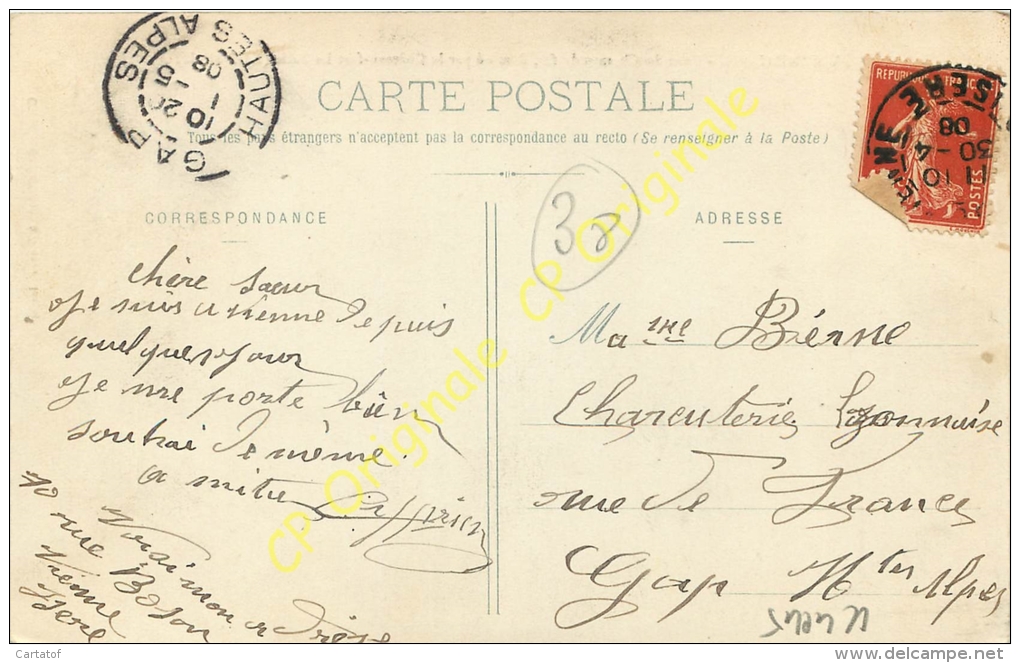 GAP
HAUTES ALPES
10 20
1 - 5
08
CARTE POSTALE
Tous les pays étrangers n'acceptent pas la correspondance au recto (Se renseigner à la Poste)
REPUBLIQUE FRANÇAISE
POSTES
ISERE
11 10
30 - 4
08
CORRESPONDANCE
chère sœur
Je suis a vienne depuis
quelques jour
Je me porte bien
souhai de même.
a mitié
40 rue Boson
Vienne
Isere
ADRESSE
38
Mame Bérne
Charcuterie Lyonnaise
rue de France
Gap Htes Alpes
CP Originale
CP Originale
CP Originale
Cartatof
www.delcampe.net